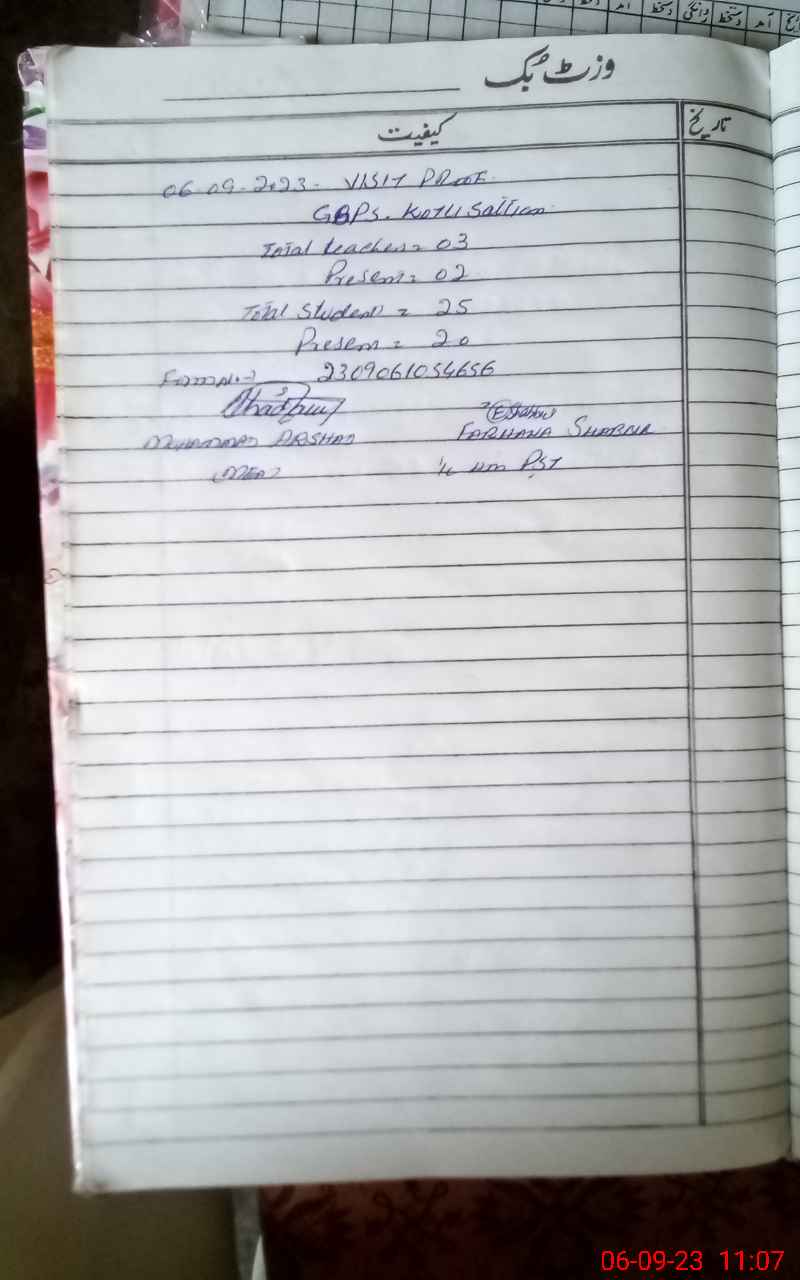 وزٹ بک
کیفیت تاریخ
06-09-2023- VISIT PROOF.
GBPS. KOTLI Sattian
Total teacher = 03
Present = 02
Total Student = 25
Present = 20
Form No-) 2309061054656
MUHAMMAD ARSHAD FARHANA SHAHNA
(MEA) PST
06-09-23 11:07